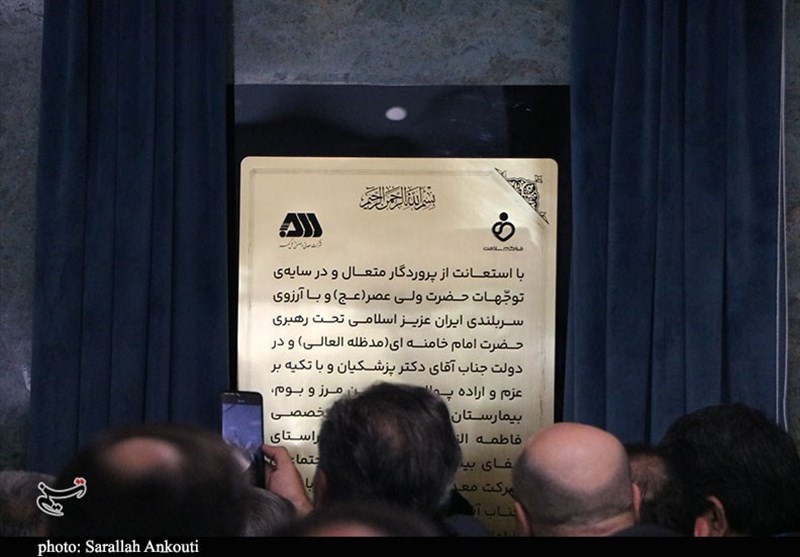 بسم الله الرحمن الرحیم
با استعـانت از پروردگار متعـال و در سایه‌ی
توجّهات حـضرت ولی عصر(عج) و بـا آرزوی
سربلندی ایران عزیز اسلامی تحت رهبری
حضرت امام خامنه ای(مدظله العالی) و در
دولت جناب آقای دکتر پزشکیان و با تکیه بر
عزم و اراده مرز و بوم،
بیمارستان تخصصی
فاطمه راستای
شرکت
جناب
تسنیم
photo: Sarallah Ankouti